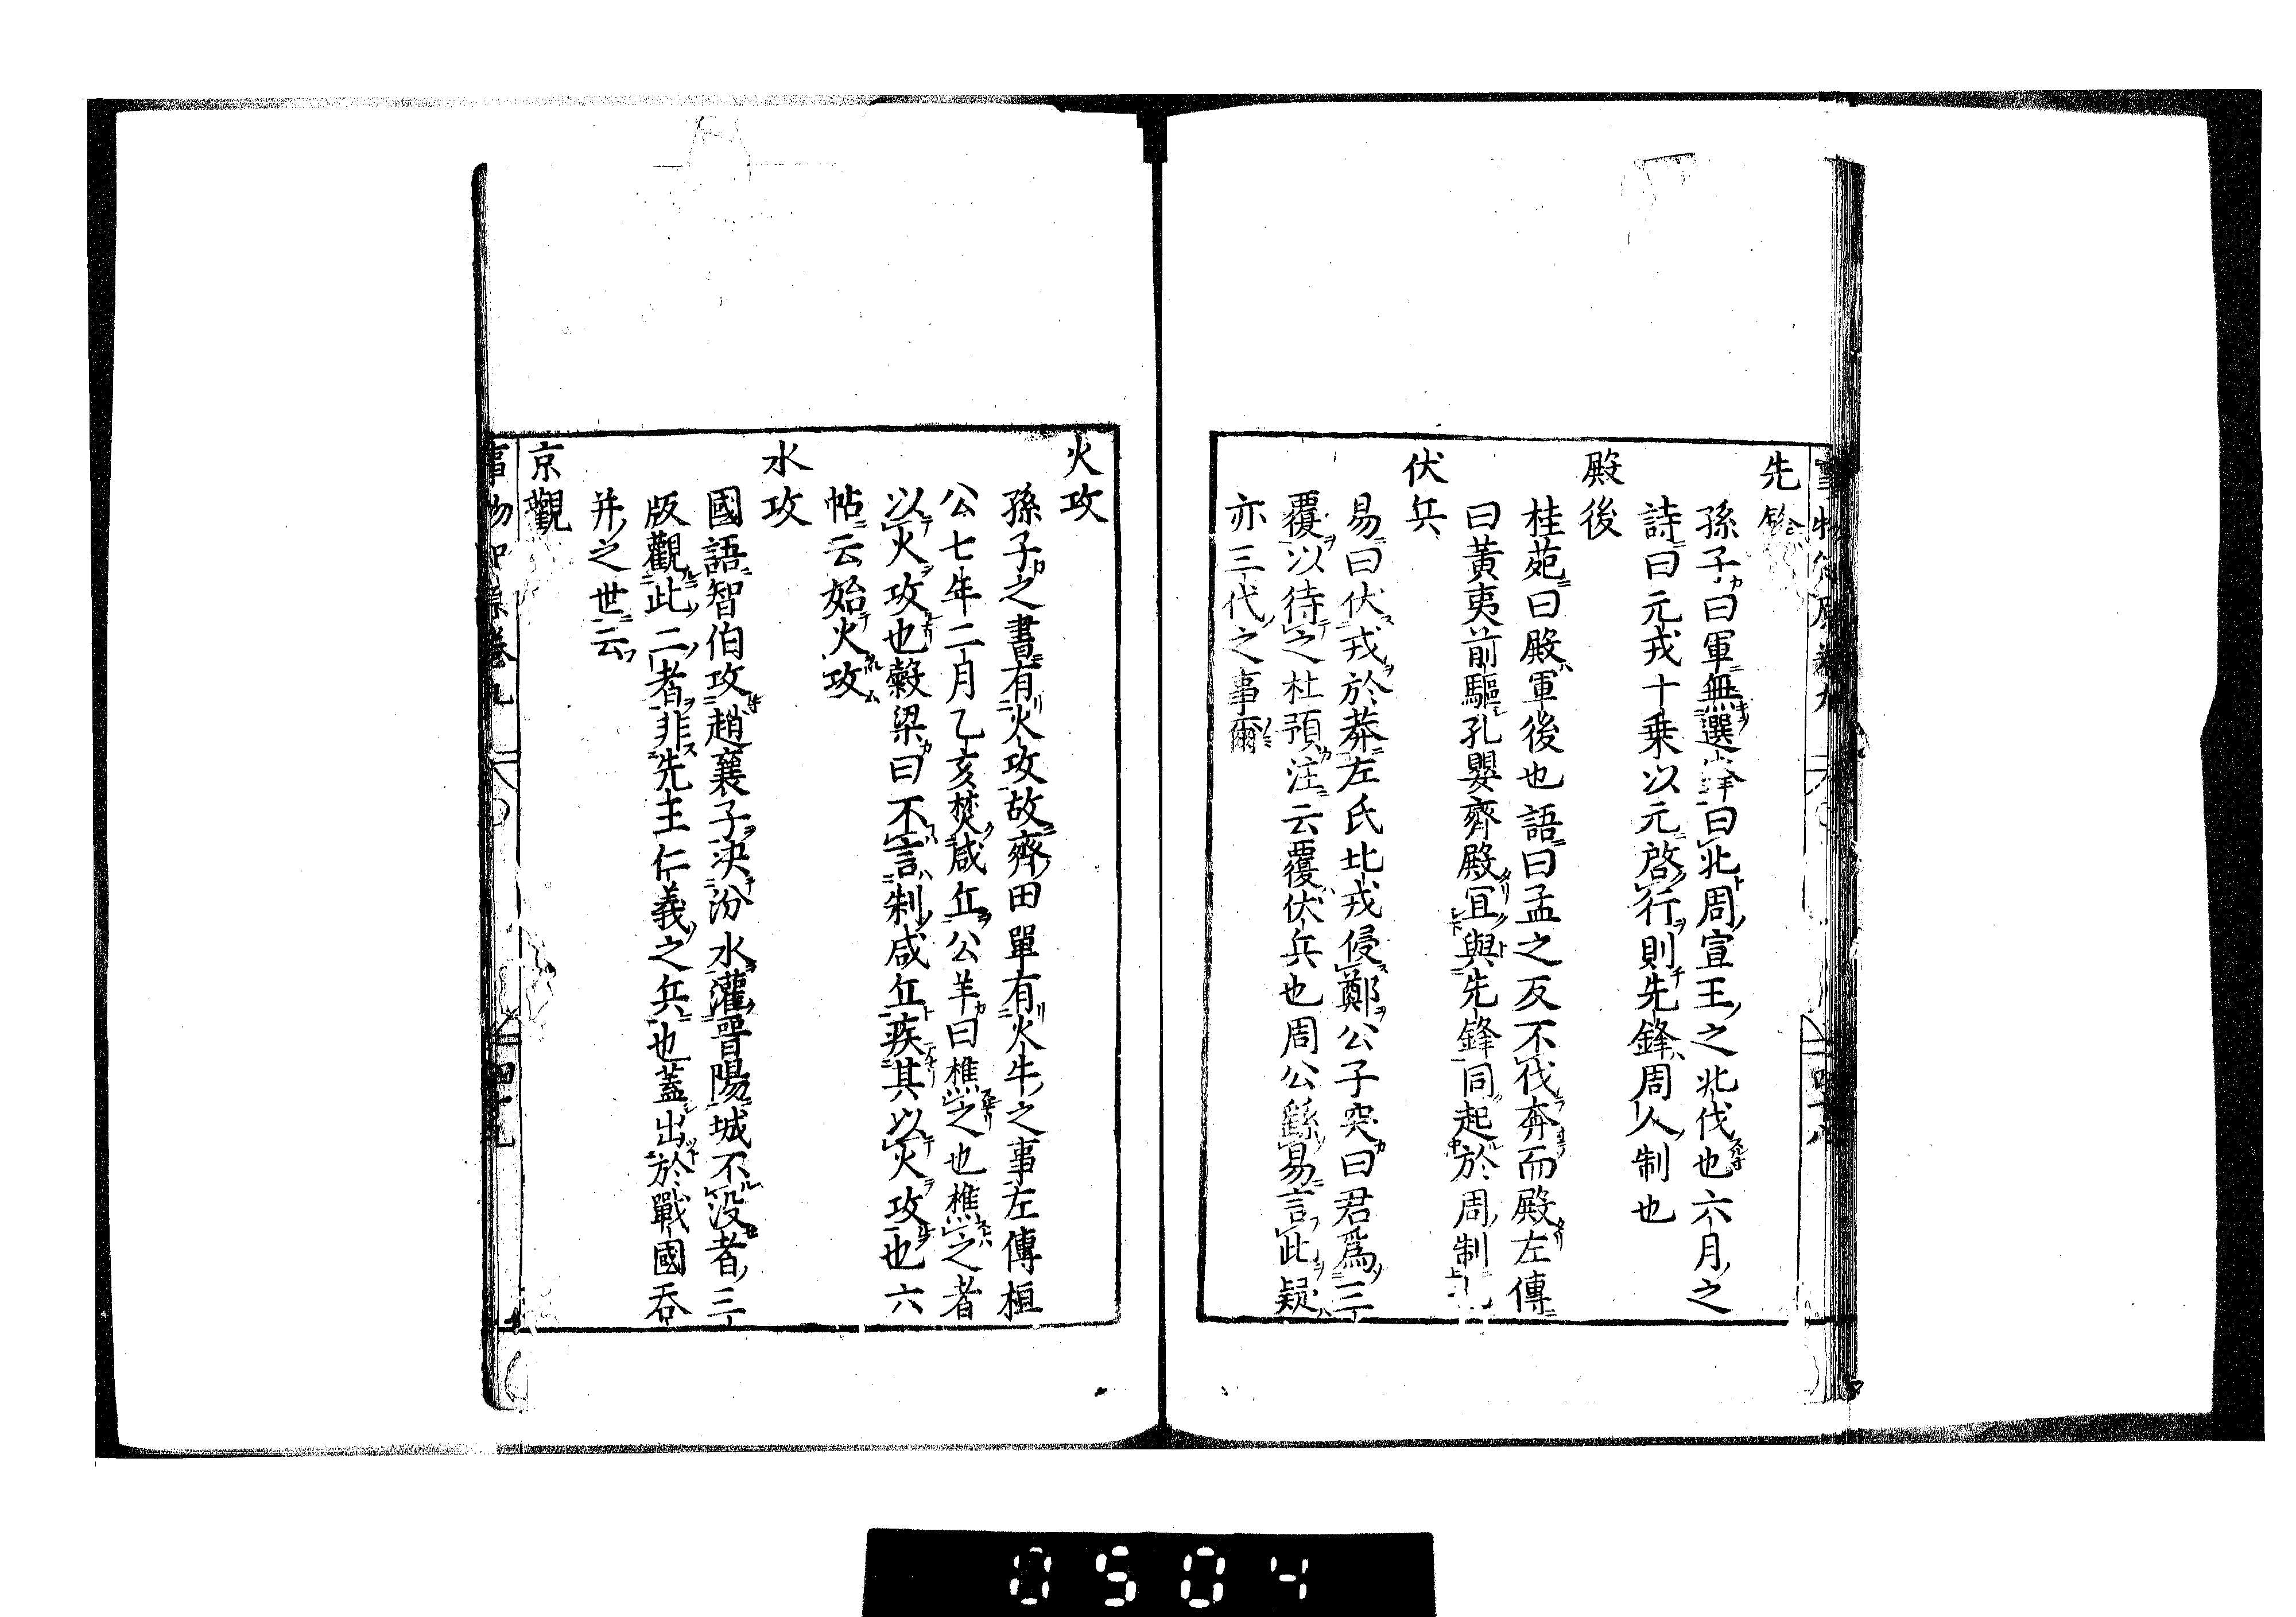 先
孫子曰軍無選鋒曰北周宣王之北伐也六月之
詩曰元戎十乗以元啓行則先鋒周人制也
殿後
桂苑曰殿軍後也語曰孟之反不伐奔而殿左傳
曰黃夷前驅孔嬰齊殿冝與先鋒同起於周制
伏兵
易曰伏戎於莽左氏北戎侵鄭公子突曰君爲三
覆以待之杜預注云覆伏兵也周公繇易言此疑
亦三代之事爾
火攻
孫子之書有火攻故齊田單有火牛之事左傳桓
公七年二月乙亥焚咸丘公羊曰樵之也樵之者
以火攻也穀梁曰不言制咸丘疾其以火攻也六
帖云始火攻
水攻
國語智伯攻趙襄子決汾水灌晋陽城不沒者三
版觀此二者非先王仁義之兵也蓋出於戰國吞
并之世云
京觀
事物 卷九
四十九
0504